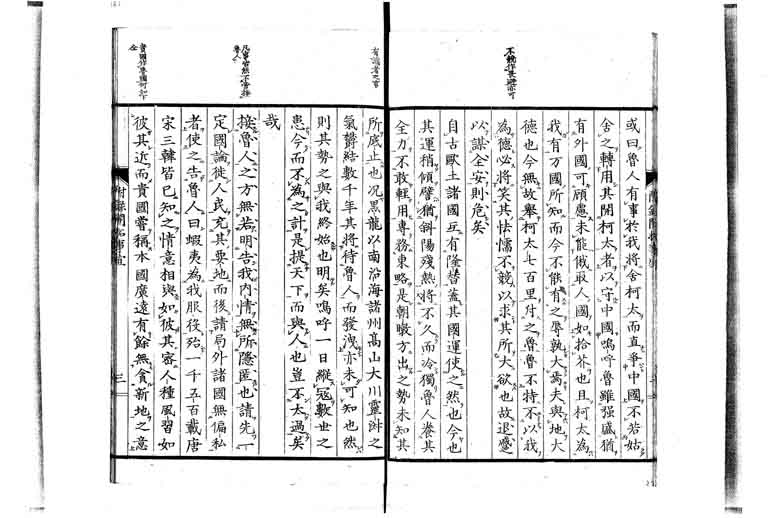 不競作畏避亦可
或曰魯人有事於我將舍柯太而直爭中國不若姑
舍之轉用其開柯太者以守中國嗚呼魯雖强盛猶
有外國可顧慮未能俄取人國如拾芥也且柯太為
我有万國所知而今不能有之辱孰大焉夫與地大
德也今無故舉柯太七百里付之魯魯不特不以我
為德必將笑其怯懦不競以求其所大欲也故退蹙
以謀全安則危矣
自古歐土諸國互有隆替蓋其國運使之然也今也
其運稍傾譬猶斜陽殘熱將不久而冷獨魯人養其
全力不敢輕用專務東略是朝暾方出之勢未知其
有識者之言
所底止也况黒龍以南沿海諸州髙山大川靈淑之
氣欝結數千年其將待魯人而發洩亦未可知也然
則其勢之與我終始也明矣嗚呼一日縱冦數世之
患今而不為之計是提天下而與人也豈不太過矣
哉
凡事當然不啻接
魯人
接魯人之方無若明告我内情無所隱匿也請先一
定國論徙人民充其要地而後請局外諸國無偏私
者使之告魯人曰蝦夷為我服役殆一千五百載唐
宋三韓皆已知之情意相與如彼其密人種風習如
貴國作魯國何如下
仝
彼其近而貴國嘗稱本國廣遠有餘無貪新地之意
三